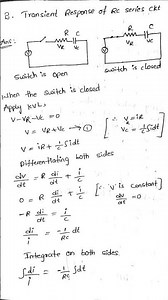 B. Transient Response of Rc series ckt
Ans:
R C
VR Vc
V
R C
VR Vc
switch is open
switch is closed
When the switch is closed
Apply KVL,
V-VR-Vc = 0
V = VR+Vc → ①
[∴ VR = iR
Vc = 1/c ∫idt
V = iR + 1/c ∫idt
Differentiating both sides
dv/dt = R di/dt + i/c
0 = R di/dt + i/c
[∴ 'V' is constant]
dv/dt = 0
-R di/dt = i/c
di/i = -1/Rc dt
Integrate on both sides
∫di/i = -1/Rc ∫dt